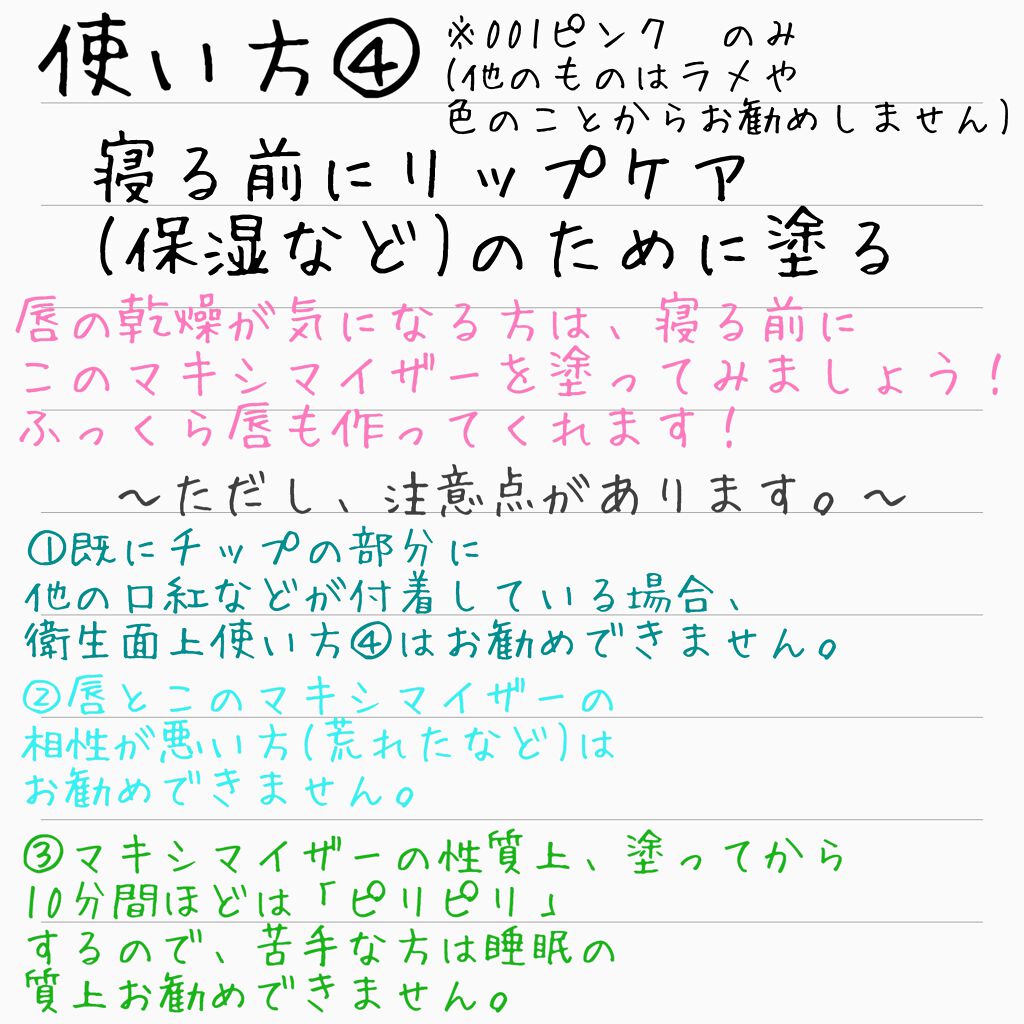 使い方④
※001ピンク のみ
(他のものはラメや
色のことからお勧めしません)
寝る前にリップケア
(保湿など)のために塗る
唇の乾燥が気になる方は、寝る前に
このマキシマイザーを塗ってみましょう!
ふっくら唇も作ってくれます!
～ただし、注意点があります。～
①既にチップの部分に
他の口紅などが付着している場合、
衛生面上使い方④はお勧めできません。
②唇とこのマキシマイザーの
相性が悪い方(荒れたなど)は
お勧めできません。
③マキシマイザーの性質上、塗ってから
10分間ほどは「ピリピリ」
するので、苦手な方は睡眠の
質上お勧めできません。